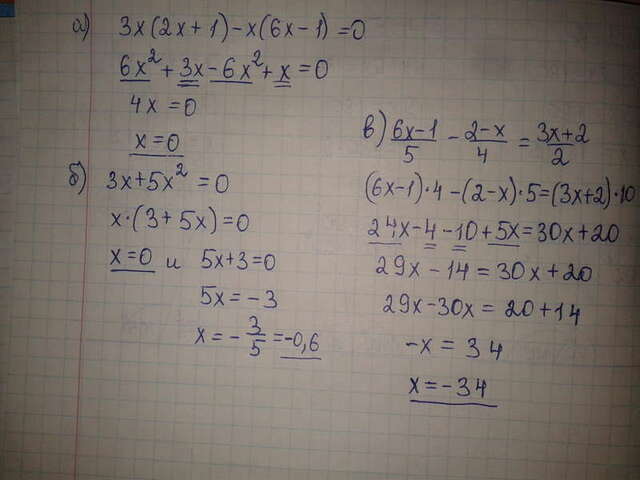 а) 3x(2x+1)-x(6x-1)=0
6x²+3x-6x²+x=0
4x=0
x=0
б) 3x+5x²=0
x·(3+5x)=0
x=0 и 5x+3=0
5x=-3
x=-3/5=-0,6
в) (6x-1)/5 - (2-x)/4 = (3x+2)/2
(6x-1)·4-(2-x)·5=(3x+2)·10
24x-4-10+5x=30x+20
29x-14=30x+20
29x-30x=20+14
-x=34
x=-34